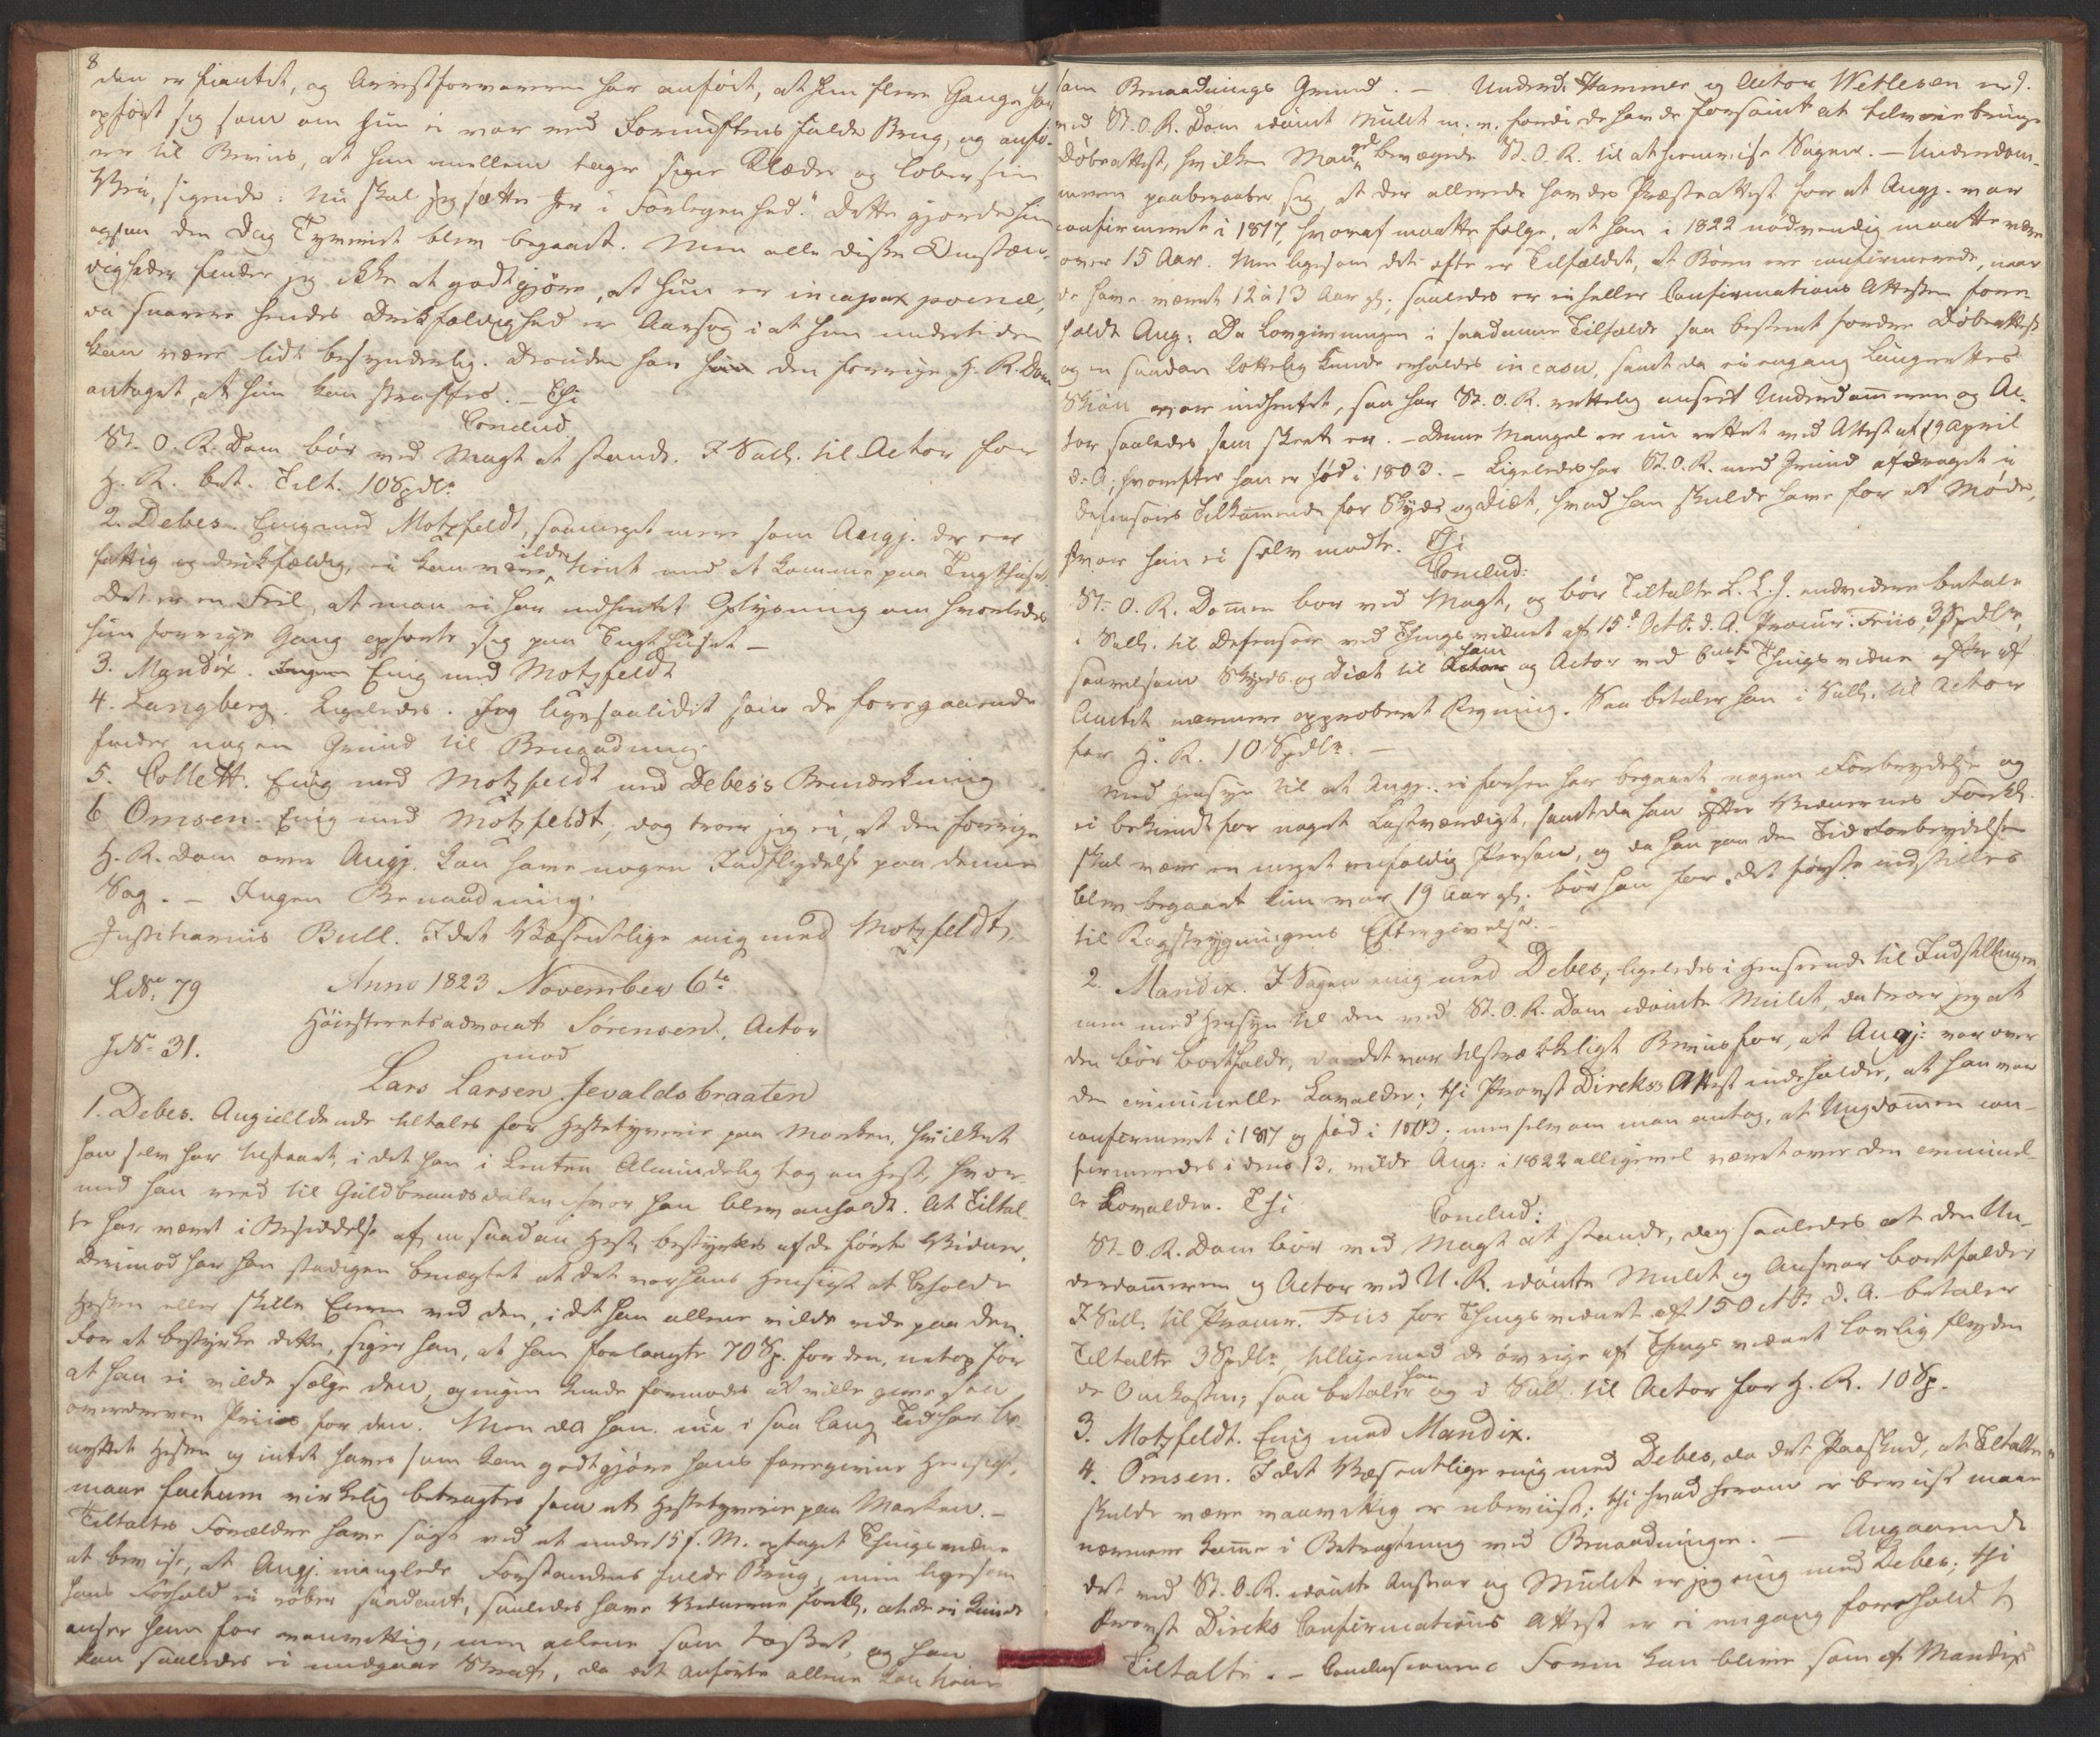 8
den er hændt, og Arrestforvareren har anført, at hun flere Gange har
opført sig som om hun ei var ved Fornuftens fulde Brug, og anfø-
rer til Beviis, at hun imellem tager sine Klæder og løber sin
Vei, sigende: nu skal jeg sætte Jer i Forlegenhed." Dette gjorde hun
ogsaa den Dag Tyveriet blev begaaet. Men alle disse Omstæn-
digheder finder jeg ikke at godtgjøre, at hun er incapax poenæ,
da snarere hendes Drikfældighed er Aarsag i at hun undertiden
kan være lidt besynderlig. Desuden har den forrige H. R. Dom
antaget, at hun kan straffes. – Thi
Conclud
St. O. R. Dom bør ved Magt at stande. I Sall. til Actor for
H. R. bet. Tilt. 10 Spdlr.
2. Debes. Enig med Motzfeldt, saameget mere som Angj. der er
fattig og drikfældig, ei kan være ilde tient med at komme paa Tugthuset.
Det er en Feil, at man ei har indhentet Oplysning om hvorledes
hun forrige Gang opførte sig paa Tugthuset –
3. Mandix. Enig med Motzfeldt
4. Langberg. Ligeledes. Jeg ligesaalidt som de foregaaende
finder nogen Grund til Benaadning.
5. Collett. Enig med Motzfeldt med Debes's Bemærkning
6 Omsen. Enig med Motzfeldt, dog troer jeg ei, at den forrige
H. R. Dom over Angj. kan have nogen Indflydelse paa denne
Sag. – Ingen Benaadning.
Justitiarius Bull. I det Væsentlige enig med Motzfeldt.
LNo. 79 Anno 1823 November 6te
JNo. 31. Høiesteretsadvocat Sørensen, Actor
mod
Lars Larsen Jevaldsbraaten
1. Debes. Angieldende tiltales for Hestetyverie paa Marken, hvilket
han selv har tilstaaet, i det han i Leuten Alminding tog en Hest, hvor-
med han reed til Guldbrandsdalen hvor han blev anholdt. At Tiltal-
te har været i Besiddelse af en saadan Hest, bestyrkes af de førte Vidner.
Derimod har han stadigen benægtet at det var hans Hensigt at beholde
Hesten eller skille Eieren ved den, i det han allene vilde ride paa den.
For at bestyrke dette, siger han, at han forlangte 70 Sp. for den, netop for
at han ei vilde sælge den, og ingen kunde formodes at ville give saa
overdreven Priis for den. Men da han nu i saa lang Tid har be-
nyttet Hesten og intet haves som kan godtgjøre hans foregivne Hensigt,
maae factum virkelig betragtes som et Hestetyverie paa Marken. –
Tiltaltes Forældre have søgt ved et under 15 f. M. optaget Thingsvidne
at bevise, at Angj. manglede Forstandens fulde Brug, men ligesom
hans Forhold ei røber saadant, saaledes have Vidnerne forkl. at de ei kunde
ansee ham for vanvittig, men allene som tosset, og han
kan saaledes ei undgaae Straf, da det anførte allene kan tiene
som Benaadnings Grund. – Underd. Hammer og Actor Wetlesen ere
ved St. O. R. Dom idømt Mulct m. v. fordi de havde forsømt at tilveiebringe
Døbeattest, hvilken Mangel bevægede St. O. R. til at hiemvise Sagen. – Underdom-
meren paaberaaber sig, at der allerede havdes Præsteattest for at Angj. var
confirmeret i 1817, hvoraf maatte følge, at han i 1822 nødvendig maatte være
over 15 Aar. Men ligesom det ofte er Tilfældet, at Børn ere confirmerede, naar
de have været 12 à 13 Aar gl., saaledes er ei heller Confirmations Attesten fore-
holdt Ang: Da Lovgivningen i saadanne Tilfælde saa bestemt fordrer Døbeattest
og en saadan lettelig kunde erholdes in casu, samt da ei engang Laugrettes
Skiøn var indhentet, saa har St. O. R. rettelig anseet Underdommeren og Ac-
tor saaledes som skeet er. – Denne Mangel er nu rettet ved Attest af 19 April
d: A; hvorefter han er fød i 1803. – Ligeledes har St. O. R. med Grund afdraget i
Defensors Tilkommende for Skyds og Diæt, hvad han skulde have for et Møde,
hvor han ei selv mødte. Thi
Conclud:
St: O. R. Dommen bør ved Magt, og bør Tiltalte L. L. J. endvidere betale
i Sall. til Defensor ved Thingsvidnet af 15d Octb. d. A. Procur. Friis, 3 Spdlr,
saavelsom Skyds- og Diæt til ham og Actor ved bmte Thingsvidne efter af
Amtet nærmere approberet Regning. Saa betaler han i Sall. til Actor
for H. R. 10 Spdlr. –
Med Hensyn til at Angj. ei forhen har begaaet nogen Forbrydelse og
ei bekiendt for noget Lastværdigt, samt da han efter Vidnernes Forkl.
skal være en meget eenfoldig Person, og da han paa den Tid Forbrydelsen
blev begaaet kun var 19 Aar gl. bør han for det første indstilles
til Kagstrygningens Eftergivelse. –
2. Mandix. I Sagen enig med Debes, ligeledes i Henseende til Indstillingen,
men med Hensyn til den ved St. O. R. Dom idømte Mulct, da troer jeg at
den bør bortfalde, da det var tilstrækkeligt Beviis for, at Angj: var over
den criminelle Lavalder; thi Provst Dircks's Attest indeholder, at han var
confirmeret i 1817 og fød i 1803; men selv om man antog, at Ungdommen con-
firmeredes i dens 13, vilde Ang: i 1822 alligevel været over den criminel-
le Lavalder. Thi
Conclud:
St. O. R. Dom bør ved Magt at stande, dog saaledes at den Un-
derdommeren og Actor ved U. R. idømte Mulct og Ansvar bortfalder
I Sall. til Procur. Friis for Thingsvidnet af 15 Octb. d. A. betaler
Tiltalte 3 Spdlr, tilligemed de øvrige af Thingsvidnet lovlig flyden
de Omkostn; saa betaler han og i Sall. til Actor for H. R. 10 Sp.
3. Motzfeldt. Enig med Mandix.
4. Omsen. I det Væsentlige enig med Debes, da det Paaskud, at Tiltalte
skulde være vanvittig er ubeviist; thi hvad herom er beviist maae
nærmere komme i Betragtning ved Benaadningen. – Angaaende
det ved St. O. R. idømte Ansvar og Mulct er jeg enig med Debes; thi
Provst Dircks Confirmations Attest er ei engang foreholdt
Tiltalte. – Conclusionens Form kan blive som af Mandix